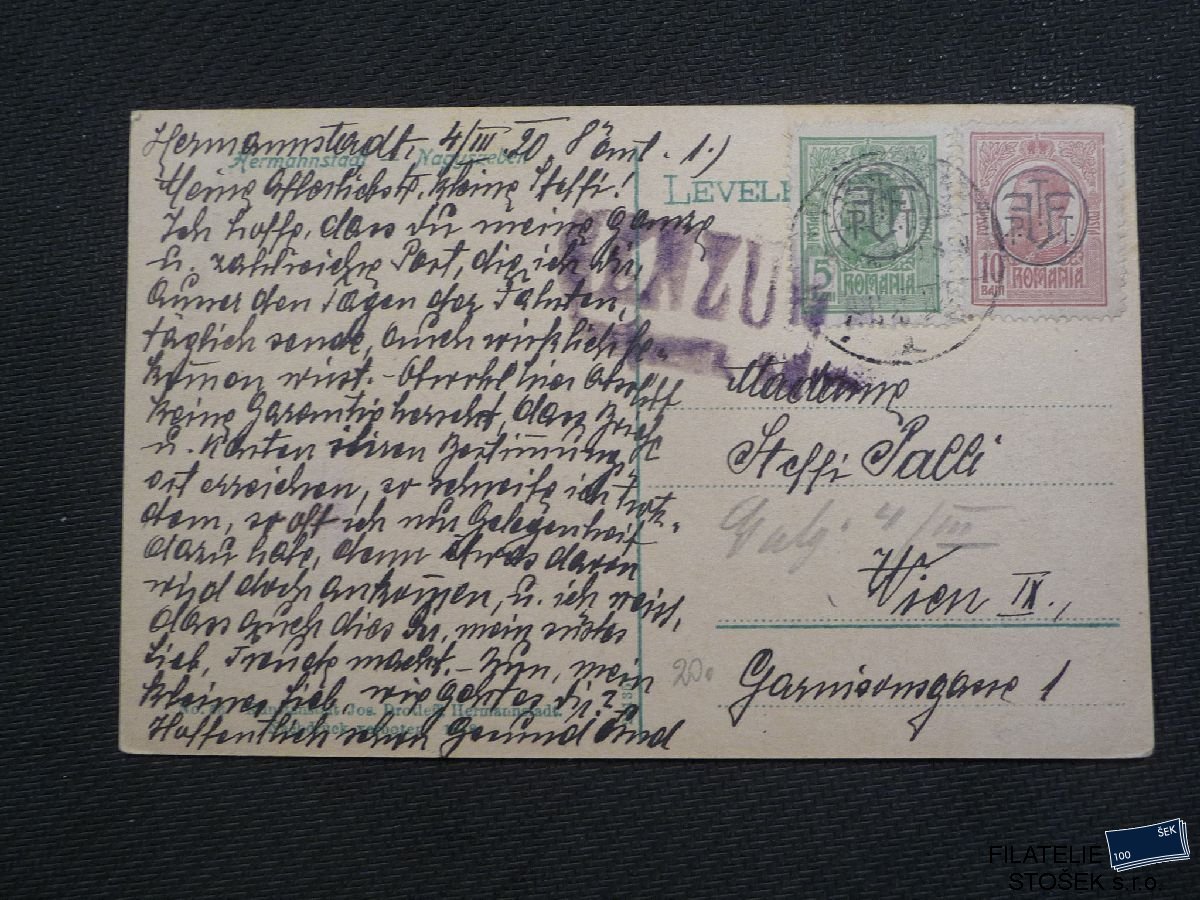 Hermannstadt, 4/III. 20. 8h
Hermannstadt Nagyszeben
Meine Allerliebste, kleine Steffi!
Ich hoffe, dass Du meine ganze
u. zahlreiche Post, die ich Dir,
ausser den Tagen der Fahrten,
täglich sende, auch wirklich be-
kommen wirst. - Obwohl hier absolut
keine Garantie herrscht, dass Briefe
u. Karten ihren Bestimmungs-
ort erreichen, so schreibe ich trotz-
dem, so oft ich nur Gelegenheit
dazu habe, denn etwas davon
wird doch ankommen, u. ich weiss,
dass auch dies Dir, mein süsses
Lieb, Freude macht. - Nun, mein
kleines Lieb, wie geht es Dir?
Jos. Drotleff, Hermannstadt.
Hoffentlich schon gesund und
LEVELE
ZENZUR
P.T.T.
5
BANI
ROMANIA
P.T.T.
10
BANI
ROMANIA
Madame
Steffi Palli
4/III
Wien IX.,
Garnisongasse 1
20.
100
ŠEK
FILATELIE
STOŠEK s.r.o.